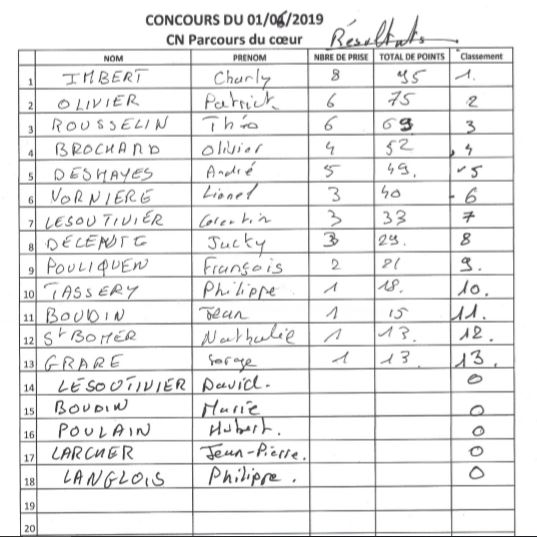 CONCOURS DU 01/06/2019
CN Parcours du cœur Résultats
NOM PRENOM NBRE DE PRISE TOTAL DE POINTS Classement
1 IMBERT Charly 8 95 1.
2 OLIVIER Patrick 6 75 2
3 ROUSSELIN Théo 6 69 3
4 BROCHARD Olivier 4 52 4
5 DESHAYES André 5 49. 5
6 VORNIERE Lionel 3 40 6
7 LESOUTIVIER Corentin 3 33 7
8 Jacky 3 29. 8
9 POULIQUEN François 2 21 9.
10 TASSERY Philippe 1 18. 10.
11 BOUDIN Jean 1 15 11.
12 St BOMER Nathalie 1 13. 12.
13 GRARE Serge 1 13. 13.
14 LESOUTIVIER David. 0
15 BOUDIN Marie 0
16 POULAIN Hubert. 0
17 LARCHER Jean-Pierre. 0
18 LANGLOIS Philippe. 0
19
20